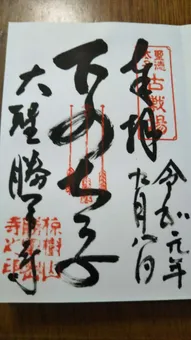 奉拝
聖徳太子
古戦場
令和元年
月八日
下の太子
大聖勝軍寺
椋樹山
寺之印